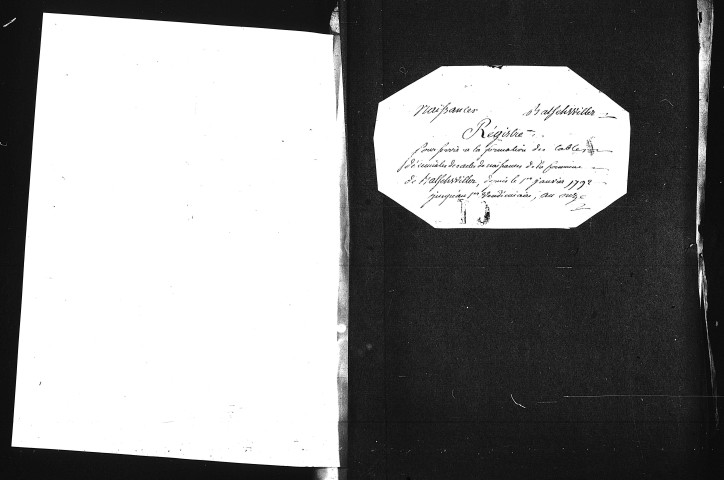 Naissances Balschwiller
Régistre
pour servir à la formation des tables
décennales des actes de naissances de la commune
de Balschwiller, depuis le 1er janvier 1792
jusqu'au 1er Vendémiaire, an onze